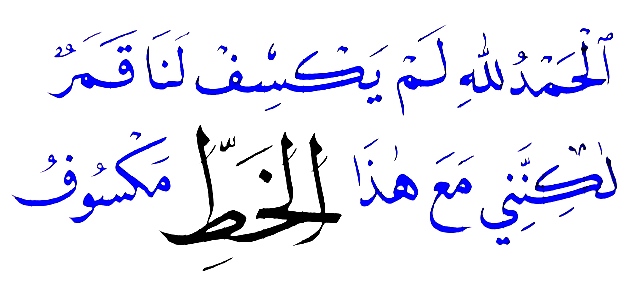 ٱلْحَمْدُ لِلّٰهِ لَمْ يَكْسِفْ لَنَا قَمَرٌ
لٰكِنَّنِي مَعَ هٰذَا الخَطِّ مَكْسُوفُ